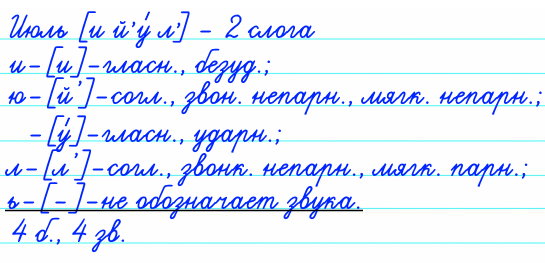 Июль [и й'у́ л'] – 2 слога
и – [и] – гласн., безуд.;
ю – [й'] – согл., звон. непарн., мягк. непарн.;
– [у́] – гласн., ударн.;
л – [л'] – согл., звонк. непарн., мягк. парн.;
ь – [ – ] – не обозначает звука.
4 б., 4 зв.